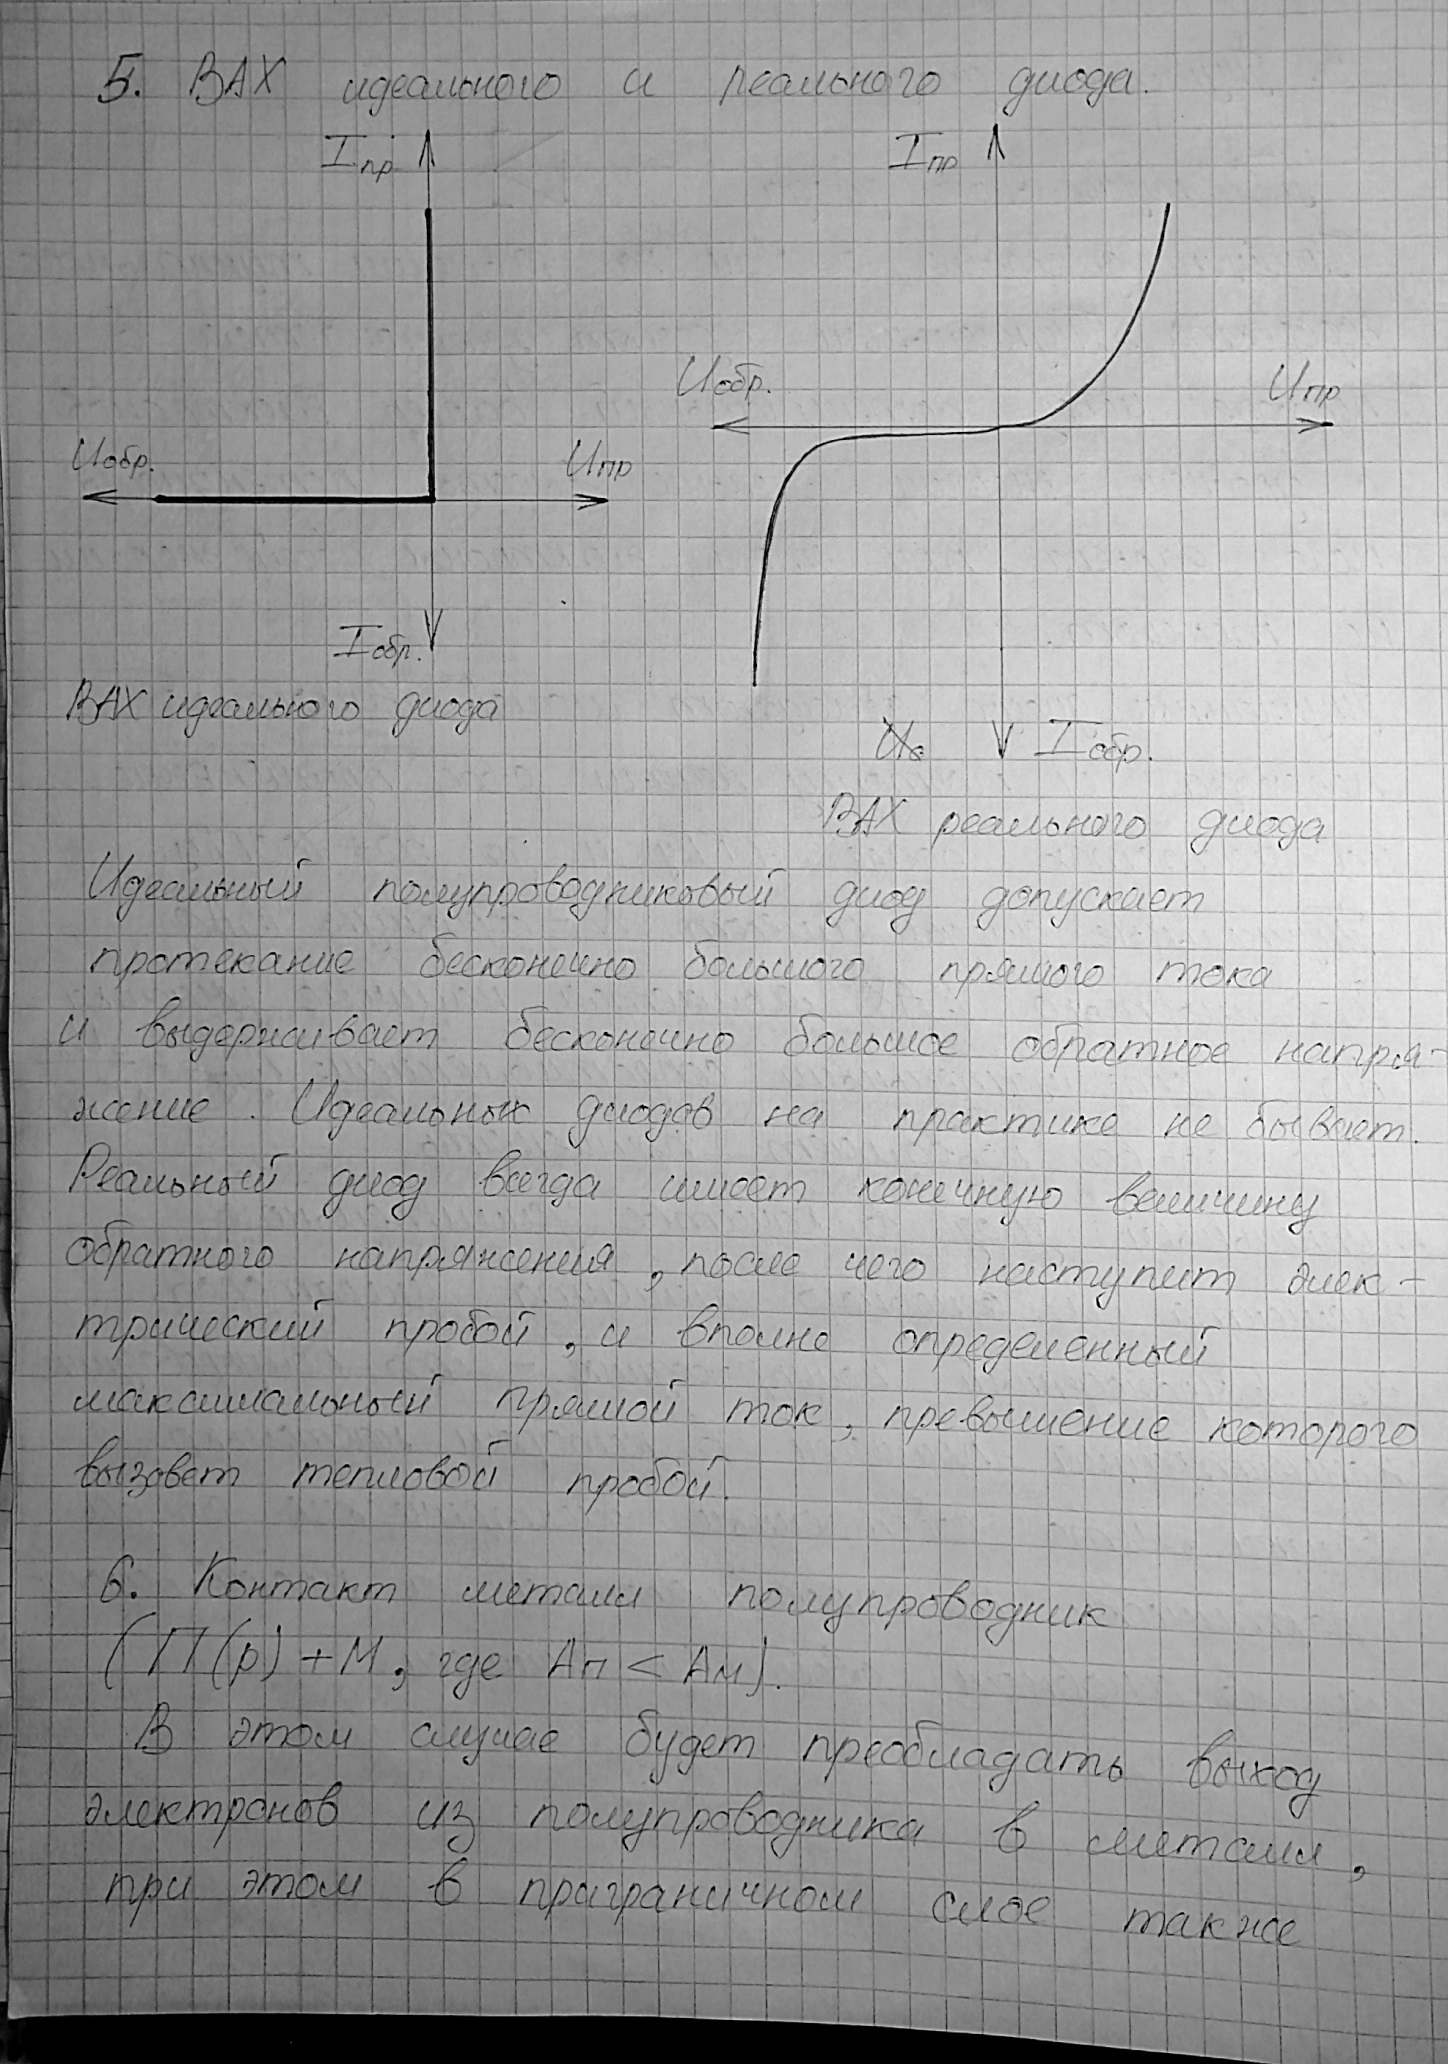 5. ВАХ идеального и реального диода.
Iпр.
Iпр
Uобр.
Uпр
Uобр.
Uпр
Iобр.
ВАХ идеального диода
Iобр.
ВАХ реального диода
Идеальный полупроводниковый диод допускает
протекание бесконечно большого прямого тока
и выдерживает бесконечно большое обратное напря-
жение. Идеальных диодов на практике не бывает.
Реальный диод всегда имеет конечную величину
обратного напряжения, после чего наступит элек-
трический пробой, и вполне определенный
максимальный прямой ток, превышение которого
вызовет тепловой пробой.
6. Контакт металл полупроводник
(П(р)+М, где Ап < Ам).
В этом случае будет преобладать выход
электронов из полупроводника в металл,
при этом в приграничном слое также